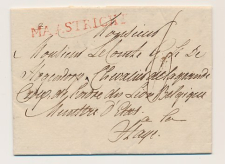 MAASTRICHT
Monsieur
Monsieur Le Comte
Chevalier de la grande
Croix de l'ordre du Lion Belgique
Ministre d'Etat
à la
Haye